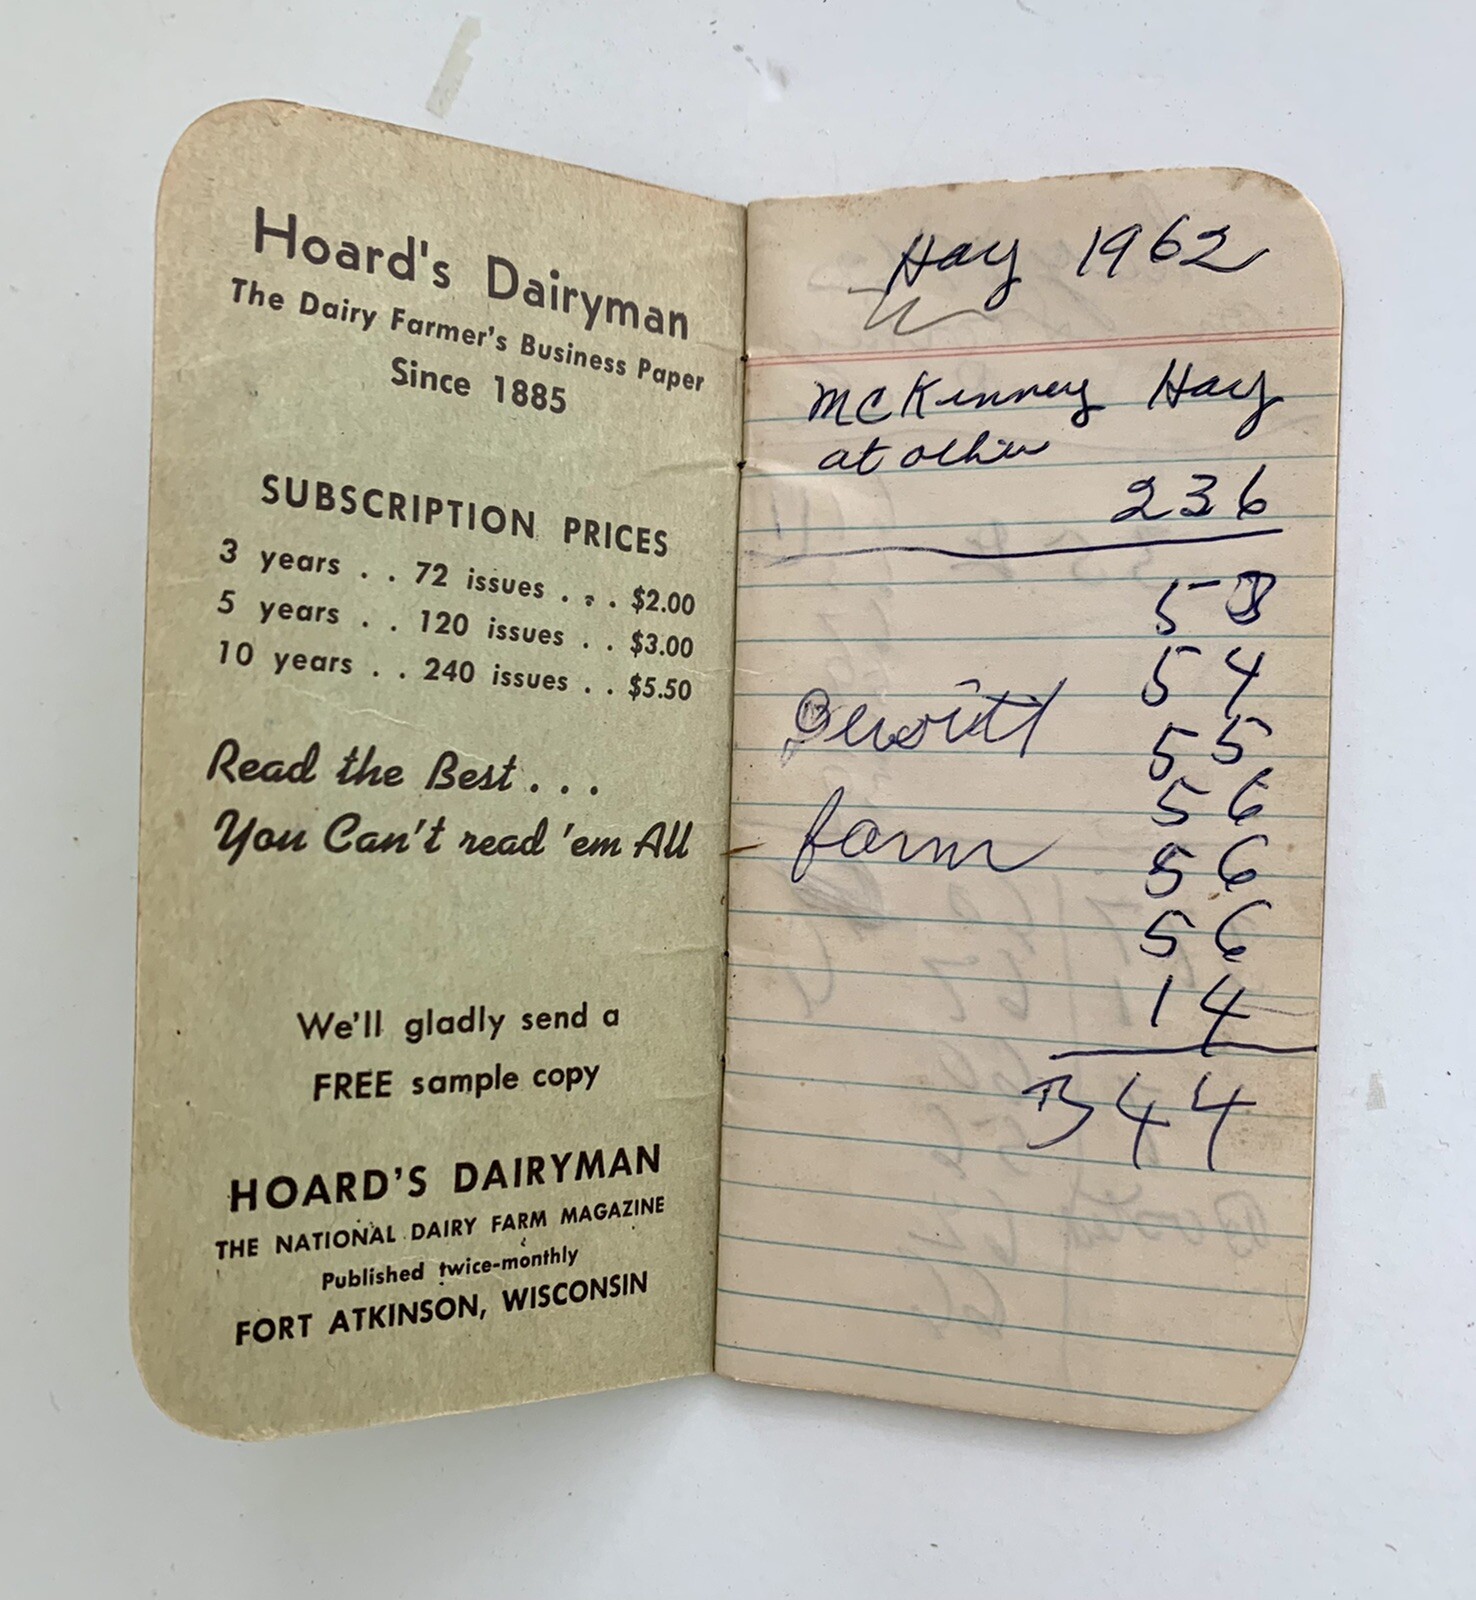 Hoard's Dairyman
The Dairy Farmer's Business Paper
Since 1885
SUBSCRIPTION PRICES
3 years . . 72 issues . . . $2.00
5 years . . 120 issues . . $3.00
10 years . . 240 issues . . $5.50
Read the Best . . .
You Can't read 'em All
We'll gladly send a
FREE sample copy
HOARD'S DAIRYMAN
THE NATIONAL DAIRY FARM MAGAZINE
Published twice-monthly
FORT ATKINSON, WISCONSIN
Hay 1962
McKinney Hay
at other
236
53
54
Dewitt 55
56
farm 56
56
14
344